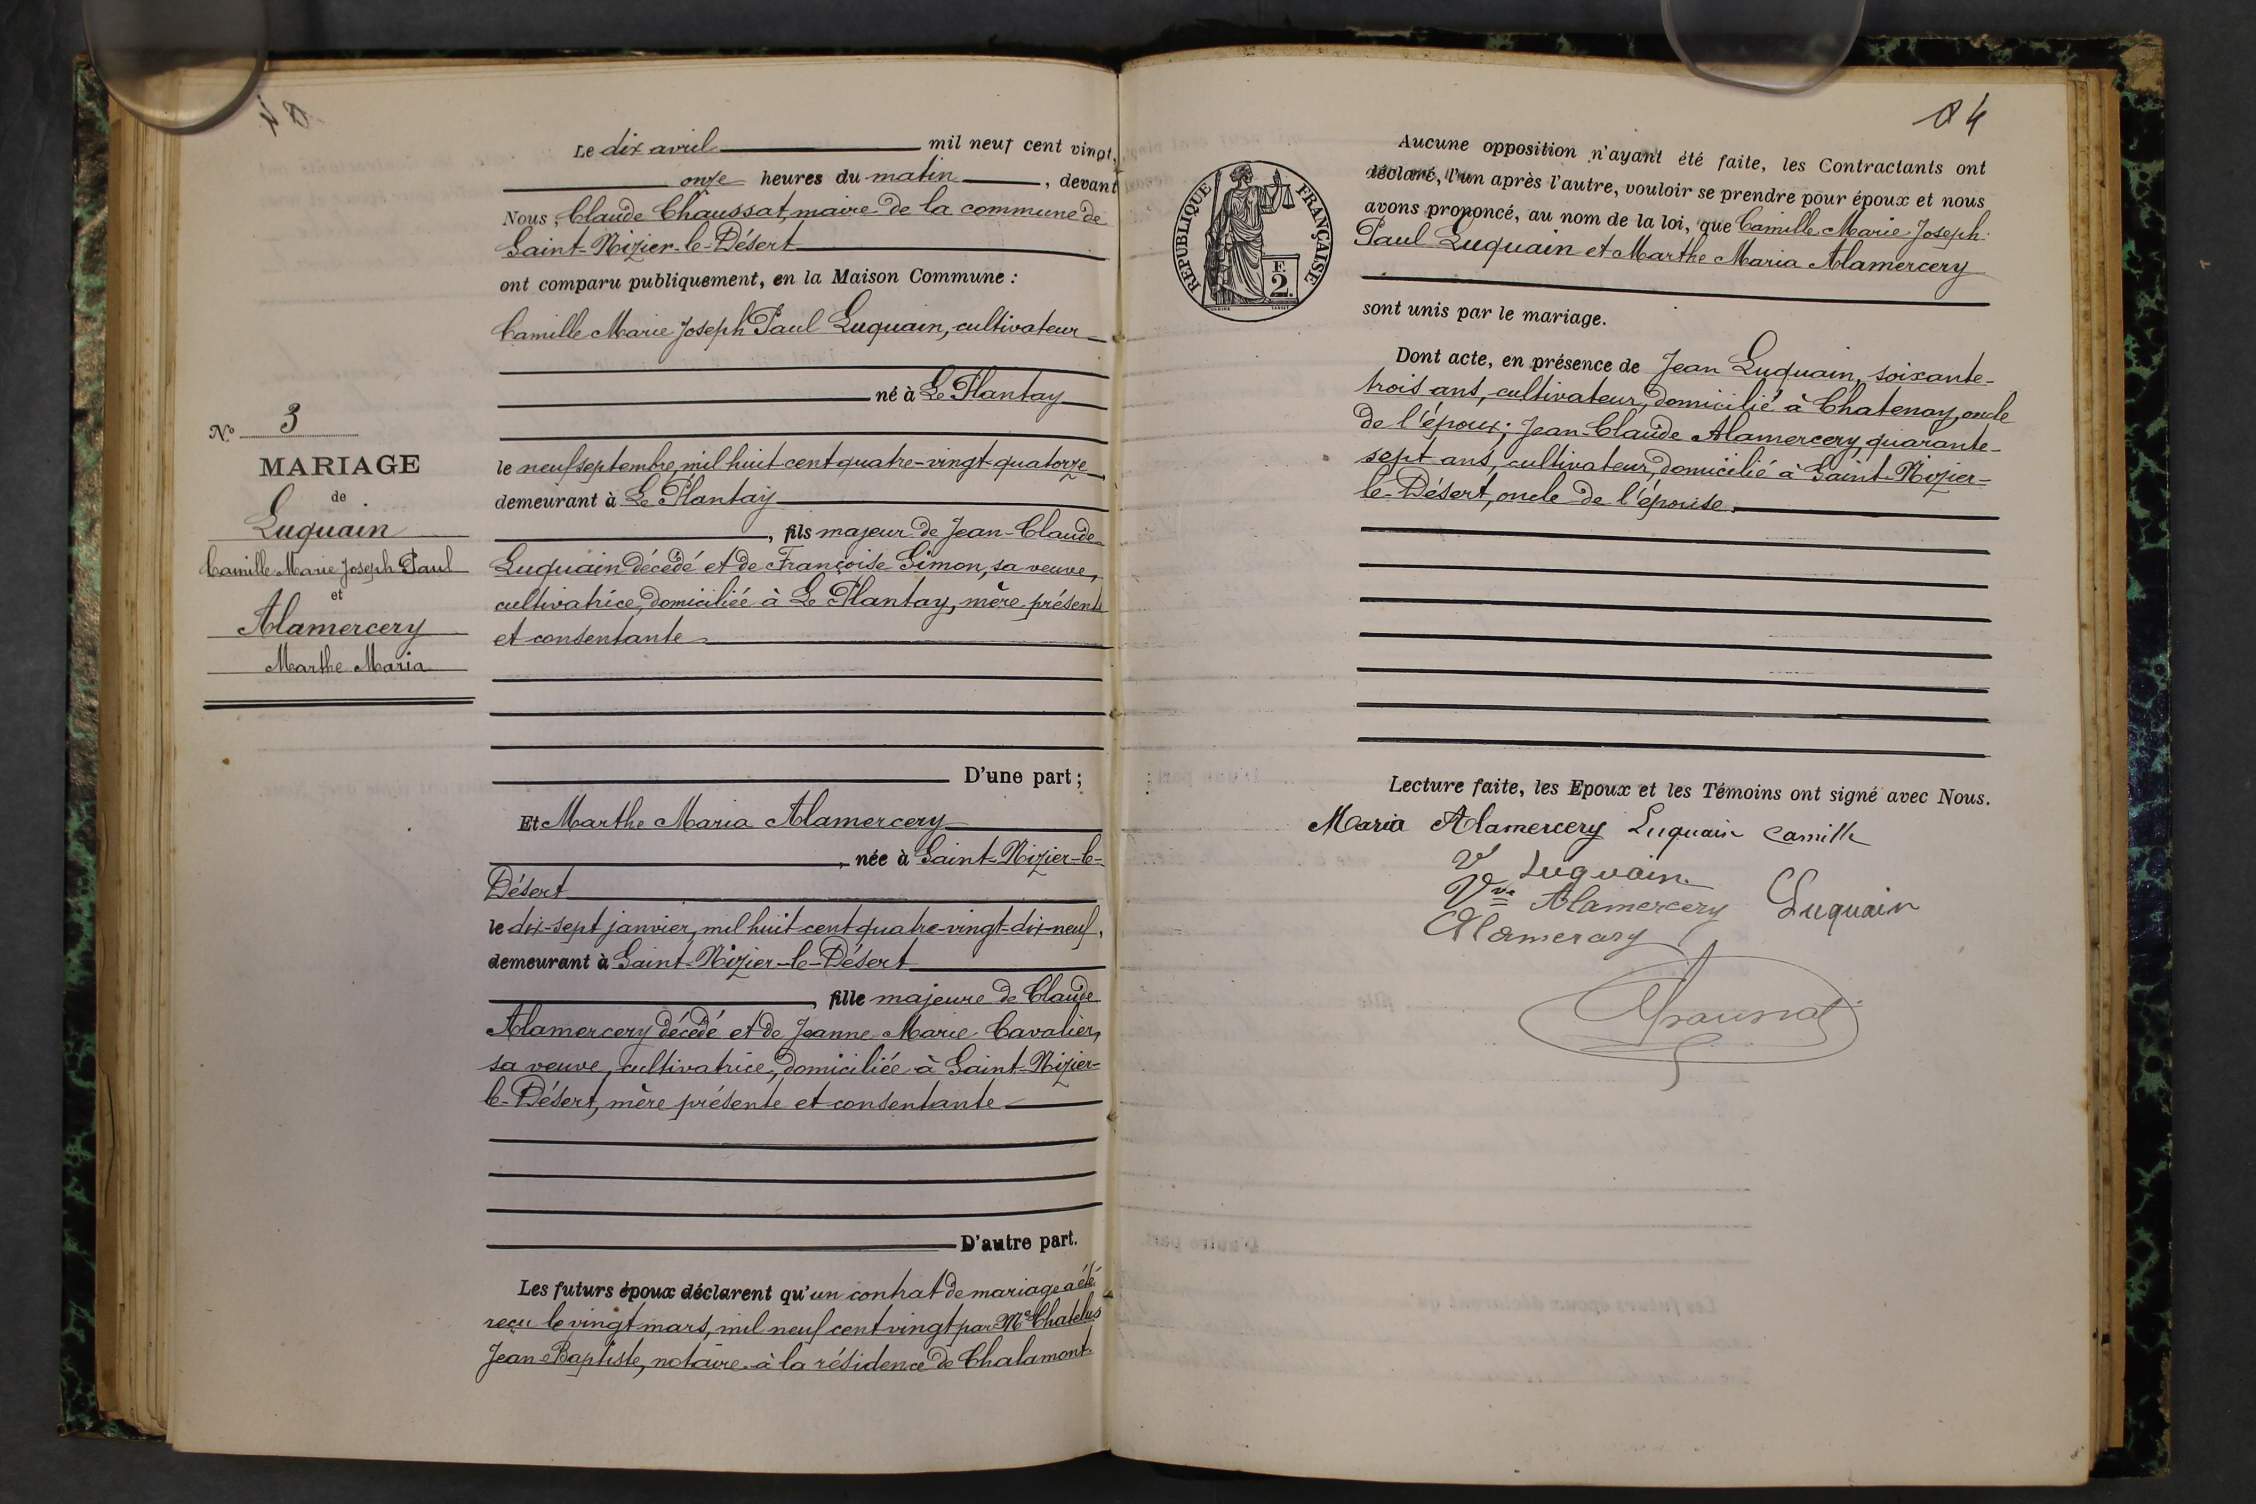 Le dix avril mil neuf cent vingt,
onze heures du matin, devant
Nous, Claude Chaussat, maire de la commune de
Saint-Nizier-le-Désert
ont comparu publiquement, en la Maison Commune :
Camille Marie Joseph Paul Luquain, cultivateur
né à Le Plantay
le neuf septembre, mil huit cent quatre-vingt-quatorze
demeurant à Le Plantay
, fils majeur de Jean-Claude
Luquain décédé et de Françoise Simon, sa veuve,
cultivatrice, domiciliée à Le Plantay, mère présente
et consentante
D'une part ;
Et Marthe Maria Alamercery
, née à Saint-Nizier-le-
Désert
le dix-sept janvier, mil huit cent quatre-vingt-dix-neuf,
demeurant à Saint-Nizier-le-Désert
, fille majeure de Claude
Alamercery décédé et de Jeanne Marie Cavalier,
sa veuve, cultivatrice, domiciliée à Saint-Nizier-
le-Désert, mère présente et consentante
D'autre part.
Les futurs époux déclarent qu'un contrat de mariage a été
reçu le vingt mars, mil neuf cent vingt par Me Chatelus
Jean Baptiste, notaire à la résidence de Chalamont
No 3
MARIAGE
de
Luquain
Camille Marie Joseph Paul
et
Alamercery
Marthe Maria
4
RÉPUBLIQUE FRANÇAISE
F.
2.
Aucune opposition n'ayant été faite, les Contractants ont
déclaré, l'un après l'autre, vouloir se prendre pour époux et nous
avons prononcé, au nom de la loi, que Camille Marie Joseph
Paul Luquain et Marthe Maria Alamercery
sont unis par le mariage.
Dont acte, en présence de Jean Luquain, soixante-
trois ans, cultivateur, domicilié à Chatenay, oncle
de l'époux ; Jean-Claude Alamercery, quarante-
sept ans, cultivateur, domicilié à Saint-Nizier-
le-Désert, oncle de l'épouse.
Lecture faite, les Epoux et les Témoins ont signé avec Nous.
Maria Alamercery Luquain Camille
V Luquain
Vve Alamercery Luquain
Alamercery
Chaussat